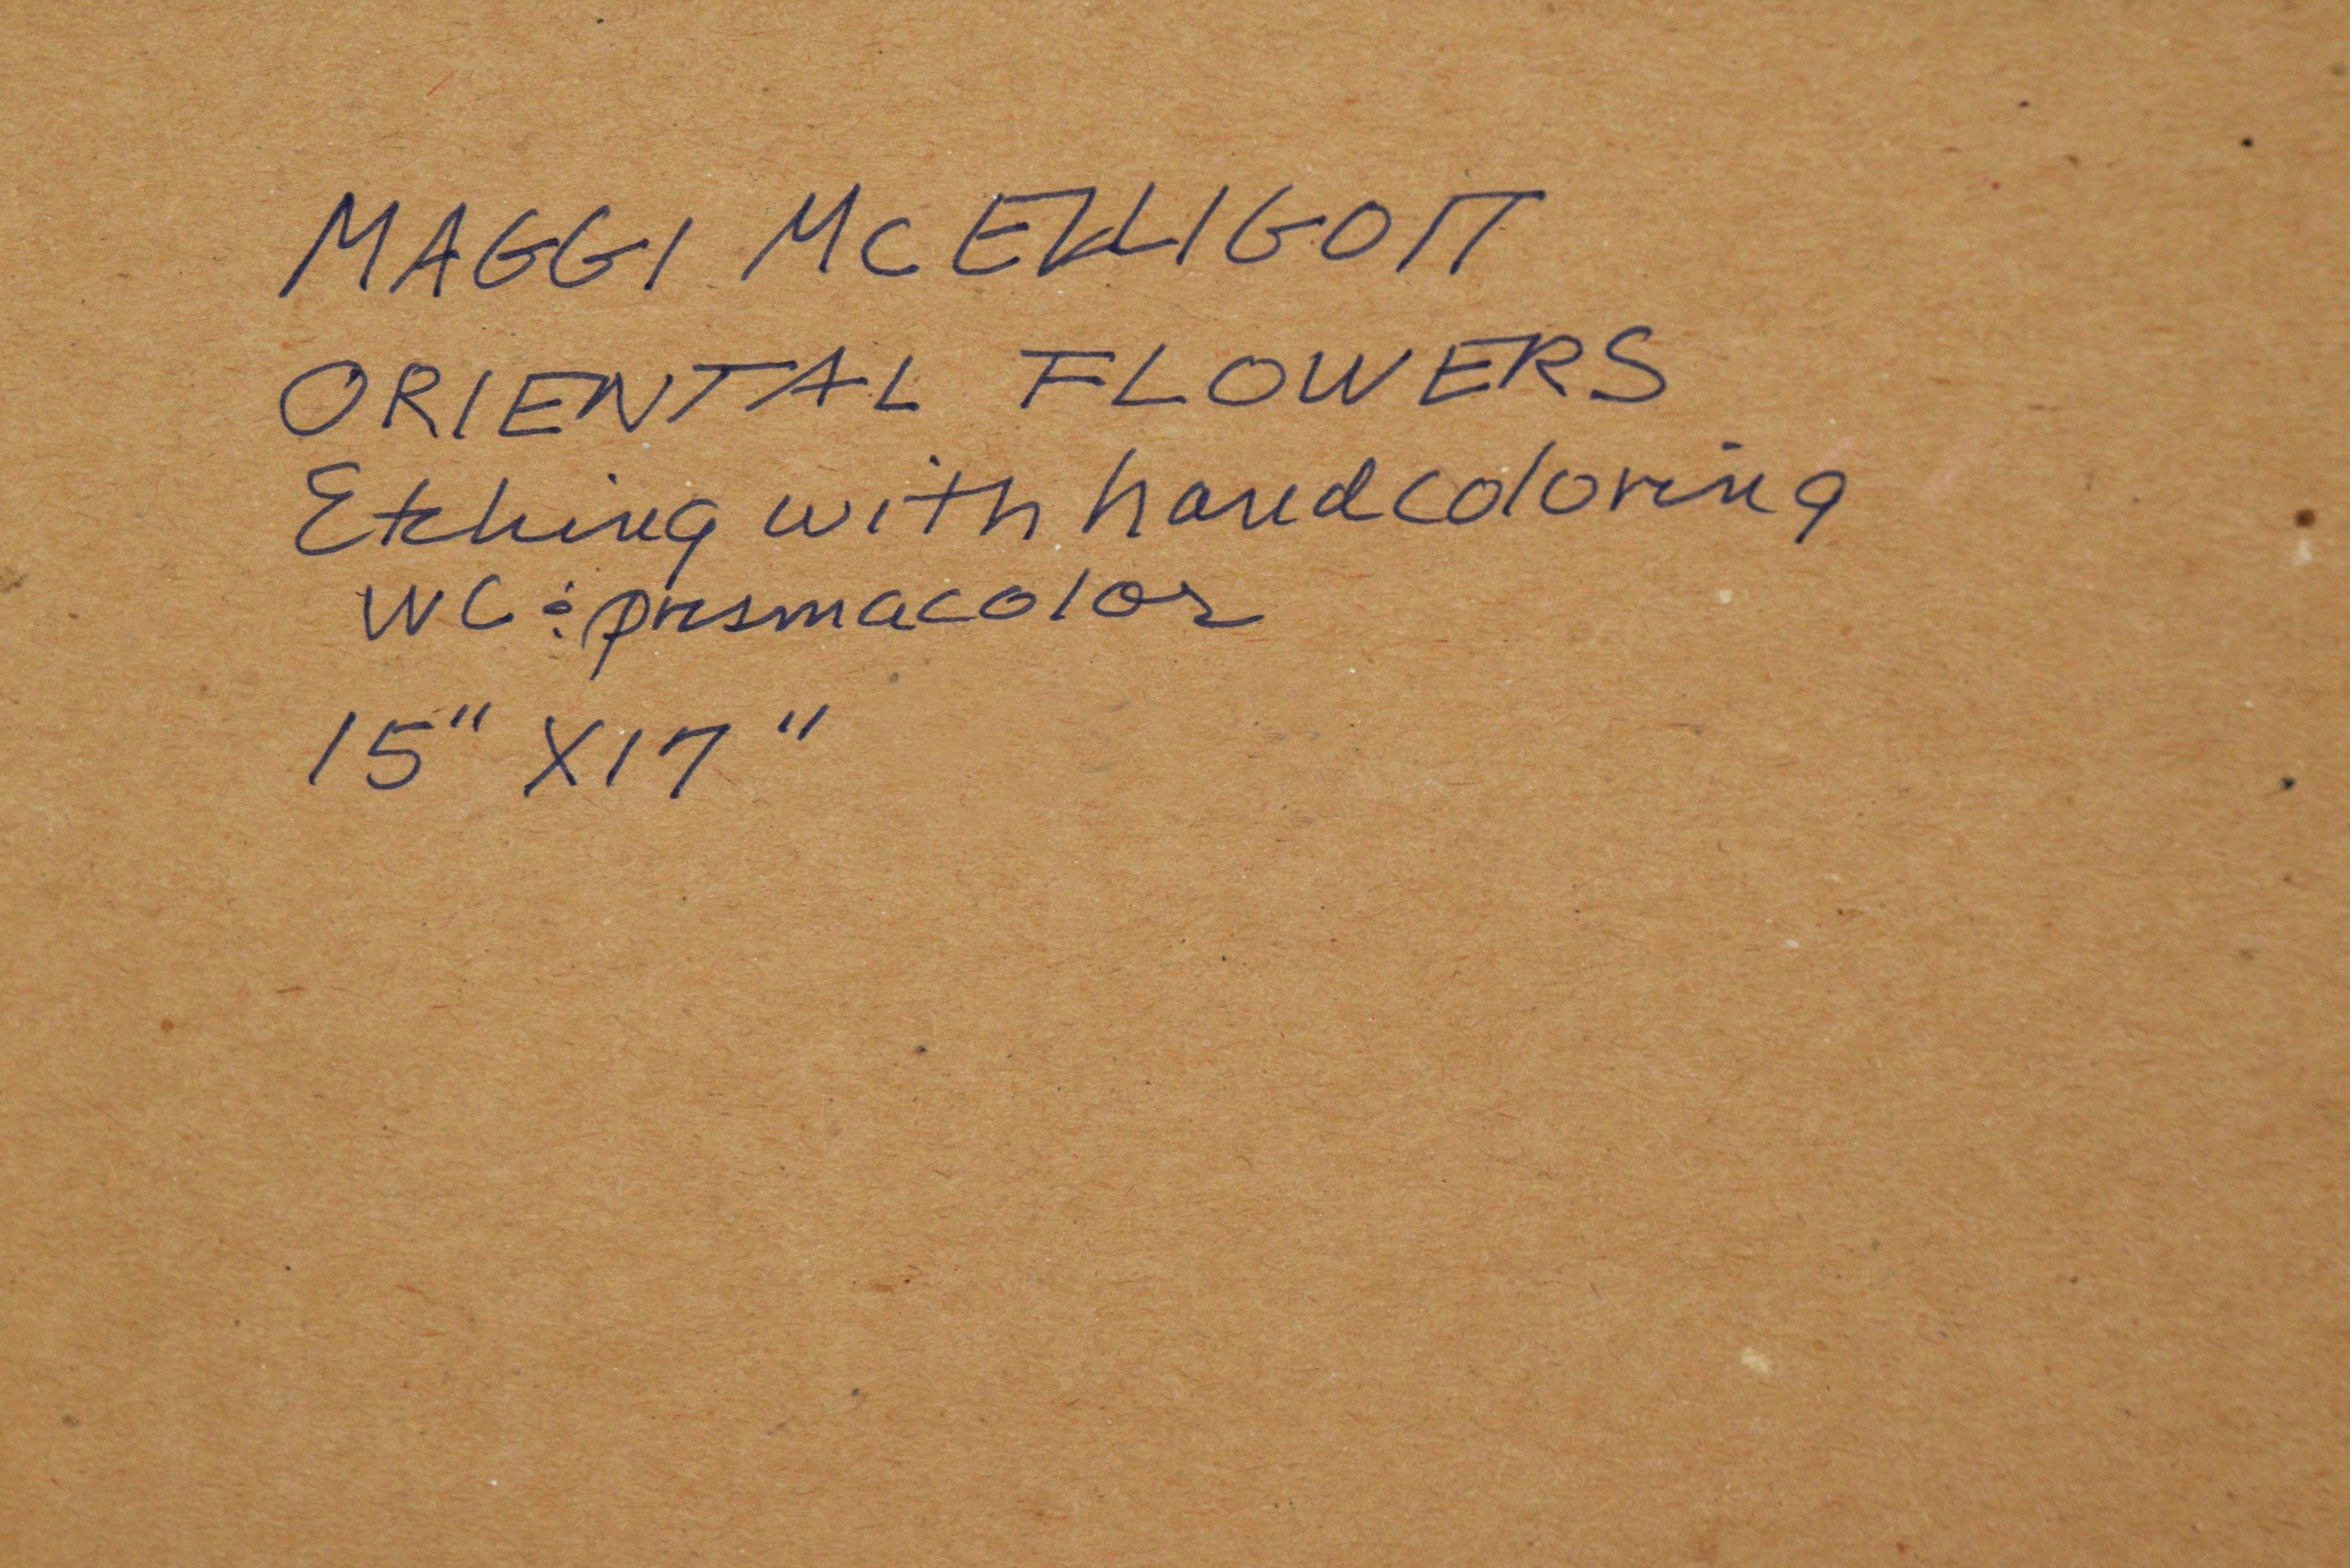 MAGGI McELLIGOTT
ORIENTAL FLOWERS
Etching with handcoloring
WC & prismacolor
15" X 17"